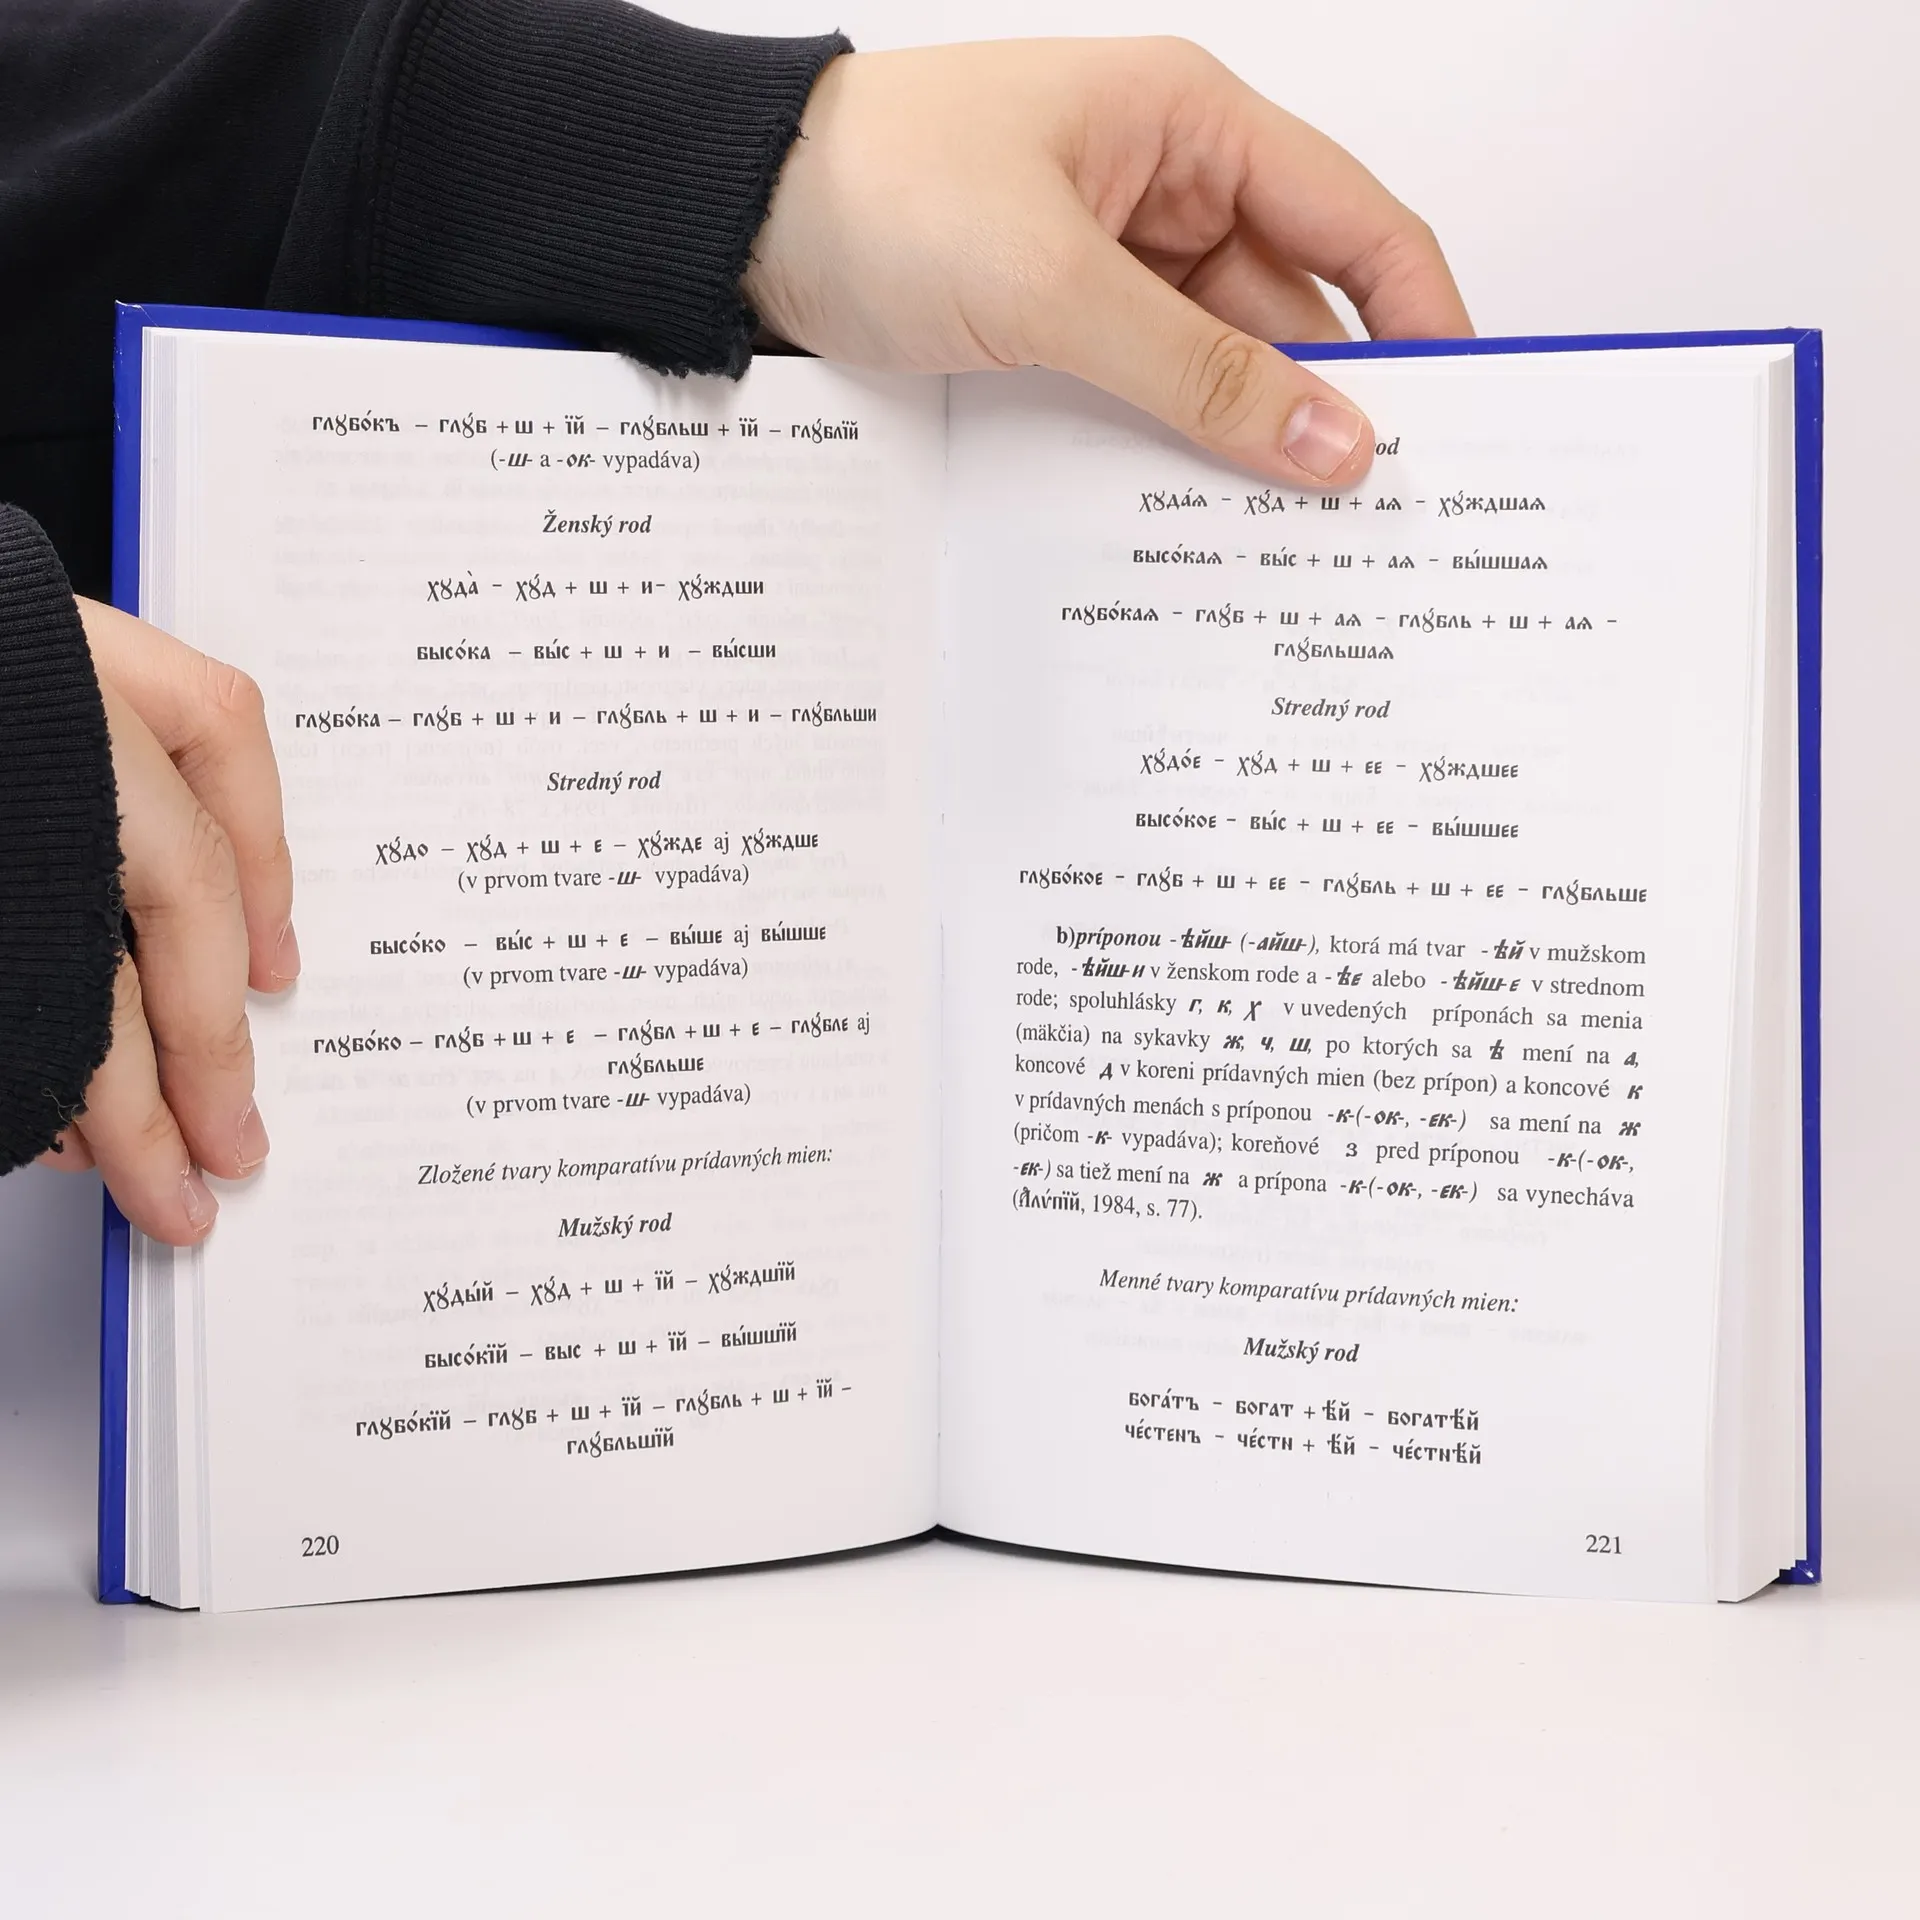 глꙋбо́къ – глꙋ́б + ш + їй – глꙋ́бльш + їй – глꙋ́блїй
(-ш- a -ок- vypadáva)
Ženský rod
хꙋда̀ – хꙋ́д + ш + и– хꙋ́ждши
высо́ка – вы́с + ш + и – вы́сши
глꙋбо́ка – глꙋ́б + ш + и – глꙋ́бль + ш + и – глꙋ́бльши
Stredný rod
хꙋ́до – хꙋ́д + ш + е – хꙋ́жде aj хꙋ́ждше
(v prvom tvare -ш- vypadáva)
высо́ко – вы́с + ш + е – вы́ше aj вы́шше
(v prvom tvare -ш- vypadáva)
глꙋбо́ко – глꙋ́б + ш + е – глꙋ́бл + ш + е – глꙋ́бле aj
глꙋ́бльше
(v prvom tvare -ш- vypadáva)
Zložené tvary komparatívu prídavných mien:
Mužský rod
хꙋ́ды́й – хꙋ́д + ш + їй – хꙋ́ждшїй
высо́кїй – выс + ш + їй – вы́шшїй
глꙋбо́кїй – глꙋб + ш + їй – глꙋ́бль + ш + їй –
глꙋ́бльшїй
220
rod
хꙋда́ѧ – хꙋ́д + ш + аѧ – хꙋ́ждшаѧ
высо́каѧ – вы́с + ш + аѧ – вы́шшаѧ
глꙋбо́каѧ – глꙋ́б + ш + аѧ – глꙋ́бль + ш + аѧ –
глꙋ́бльшаѧ
Stredný rod
хꙋ́до́е – хꙋ́д + ш + ее – хꙋ́ждшее
высо́кое – вы́с + ш + ее – вы́шшее
глꙋбо́кое – глꙋ́б + ш + ее – глꙋ́бль + ш + ее – глꙋ́бльше
b)príponou -ѣйш- (-айш-), ktorá má tvar -ѣй v mužskom
rode, -ѣйш-и v ženskom rode a -ѣе alebo -ѣйш-е v strednom
rode; spoluhlásky г, к, х v uvedených príponách sa menia
(mäkčia) na sykavky ж, ч, ш, po ktorých sa ѣ mení na а,
koncové д v koreni prídavných mien (bez prípon) a koncové к
v prídavných menách s príponou -к-(-ок-, -ек-) sa mení na ж
(pričom -к- vypadáva); koreňové з pred príponou -к-(-ок-,
-ек-) sa tiež mení na ж a prípona -к-(-ок-, -ек-) sa vynecháva
(А҆лѵ́пїй, 1984, s. 77).
Menné tvary komparatívu prídavných mien:
Mužský rod
бога́тъ – богат + ѣ́й – богатѣ́й
че́стенъ – че́стн + ѣ́й – че́стнѣ́й
221